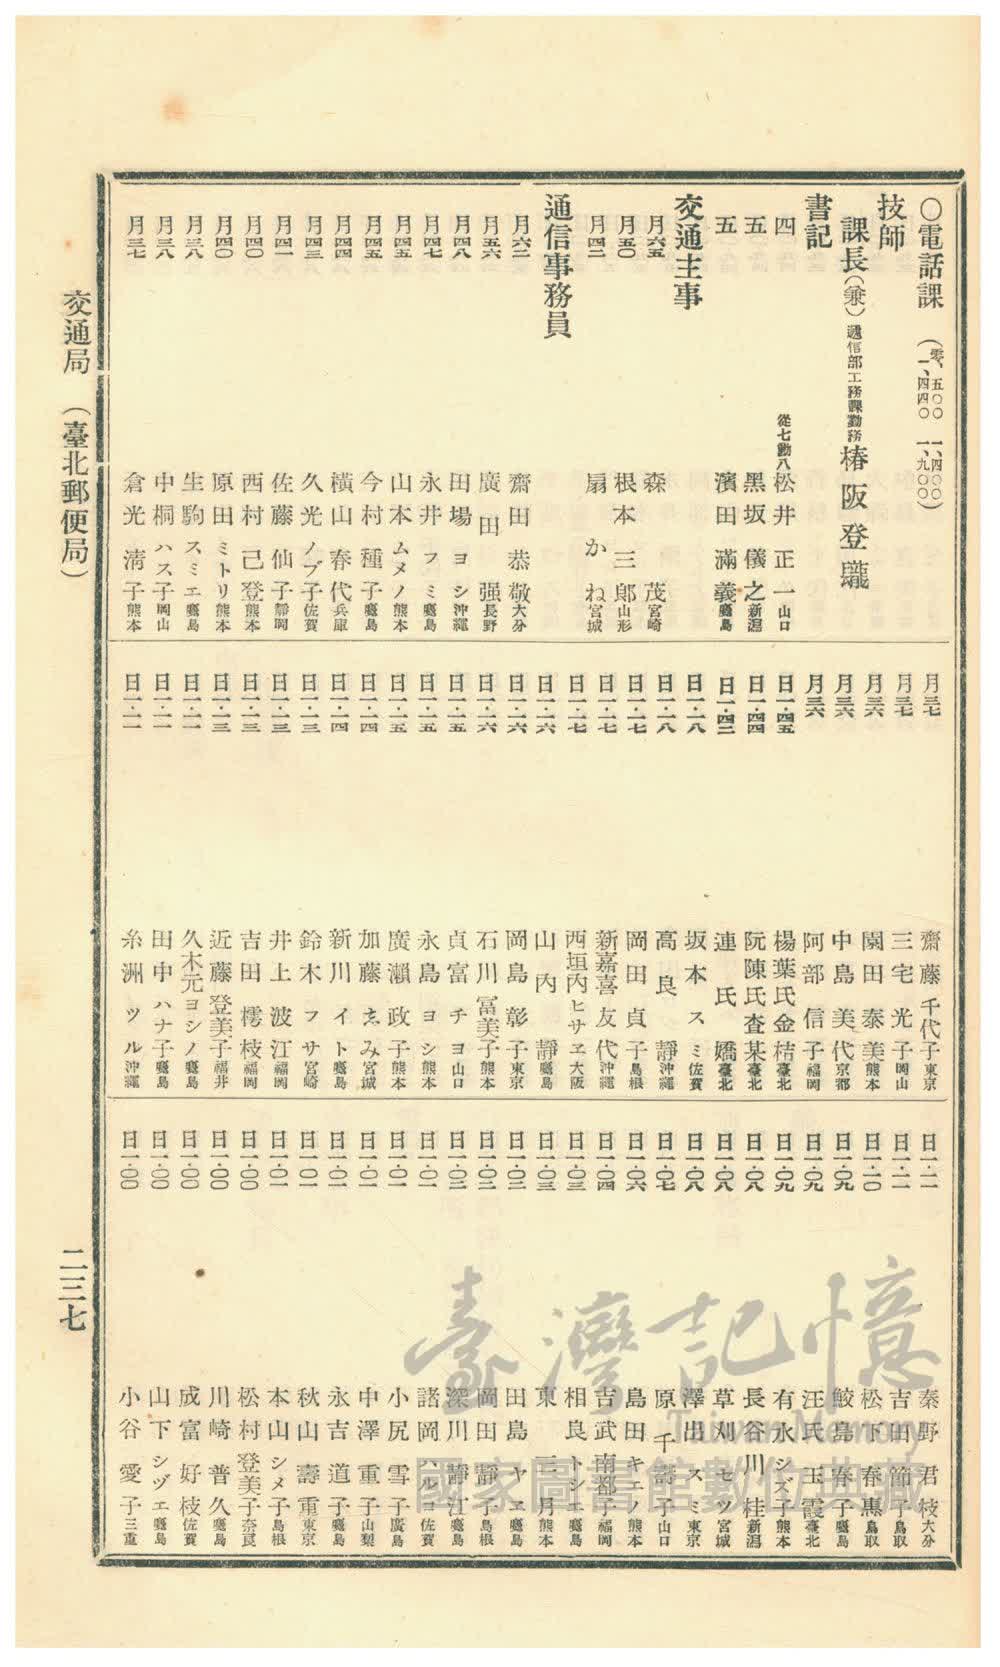 〇電話課（零、五〇〇　一、四〇〇　一、四四〇　一、九〇〇）
技師
課長（兼）遞信部工務課勤務　椿阪登瓏
書記
四　從七勳八　松井正一　山口
五　黑坂儀之　新潟
五　濱田滿義　鹿島
交通主事
月六五　森茂　宮崎
月五〇　根本三郞　山形
月四二　扇かね　宮城
通信事務員
月六二　齋田恭敬　大分
月五六　廣田强　長野
月四八　田場ヨシ　沖繩
月四七　永井フミ　鹿島
月四五　山本ムメノ　熊本
月四五　今村種子　鹿島
月四四　橫山春代　兵庫
月四三　久光ノブ子　佐賀
月四一　佐藤仙子　靜岡
月四〇　西村己登　熊本
月四〇　原田ミトリ　熊本
月三八　生駒スミエ　鹿島
月三八　中桐ハス子　岡山
月三七　倉光淸子　熊本
月三七　齋藤千代子　東京
月三七　三宅光子　岡山
月三六　園田泰美　熊本
月三六　中島美代　京都
月三六　阿部信子　福岡
日一・四五　楊葉氏金桔　臺北
日一・四四　阮陳氏査某　臺北
日一・四二　連氏嬌　臺北
日一・一八　坂本スミ　佐賀
日一・一八　高良靜　沖繩
日一・一七　岡田貞子　島根
日一・一七　新嘉喜友代　沖繩
日一・一七　西垣內ヒサヱ　大阪
日一・一六　山內靜　鹿島
日一・一六　岡島彰子　東京
日一・一六　石川冨美子　熊本
日一・一五　貞富チヨ　山口
日一・一五　永島ヨシ　熊本
日一・一五　廣瀨政子　熊本
日一・一四　加藤ゑみ　宮城
日一・一四　新川イト　鹿島
日一・一三　鈴木フサ　宮崎
日一・一三　井上波江　福岡
日一・一三　吉田樗枝　福岡
日一・一三　近藤登美子　福井
日一・一一　久木元ヨシノ　鹿島
日一・一一　田中ハナ子　鹿島
日一・一一　糸洲イツル　沖繩
日一・一一　秦野君枝　大分
日一・一一　吉田節子　鳥取
日一・一〇　松下春惠　鳥取
日一・〇九　鮫島春子　鹿島
日一・〇九　汪氏玉霞　臺北
日一・〇九　有水シズ子　熊本
日一・〇八　長谷川桂　新潟
日一・〇八　草刈セツ　宮城
日一・〇八　澤出スミ　東京
日一・〇七　原千壽子　山口
日一・〇六　島田キエノ　熊本
日一・〇四　吉武南都子　福岡
日一・〇三　相良トシエ　鹿島
日一・〇三　東三月　熊本
日一・〇二　田島ヤヱ　鹿島
日一・〇二　岡田靜子　島根
日一・〇二　深川靜江　鹿島
日一・〇一　諸岡ハルコ　佐賀
日一・〇一　小尻雪子　廣島
日一・〇一　中澤重子　山梨
日一・〇一　永吉道子　鹿島
日一・〇一　秋山壽重　東京
日一・〇一　本山シメ子　島根
日一・〇〇　松村登美子　奈良
日一・〇〇　川崎普久　鹿島
日一・〇〇　成富好枝　佐賀
日一・〇〇　山下シヅエ　鹿島
日一・〇〇　小谷愛子　三重
交通局（臺北郵便局）
二三七
臺灣記憶
Taiwan Memory
國家圖書館數位典藏